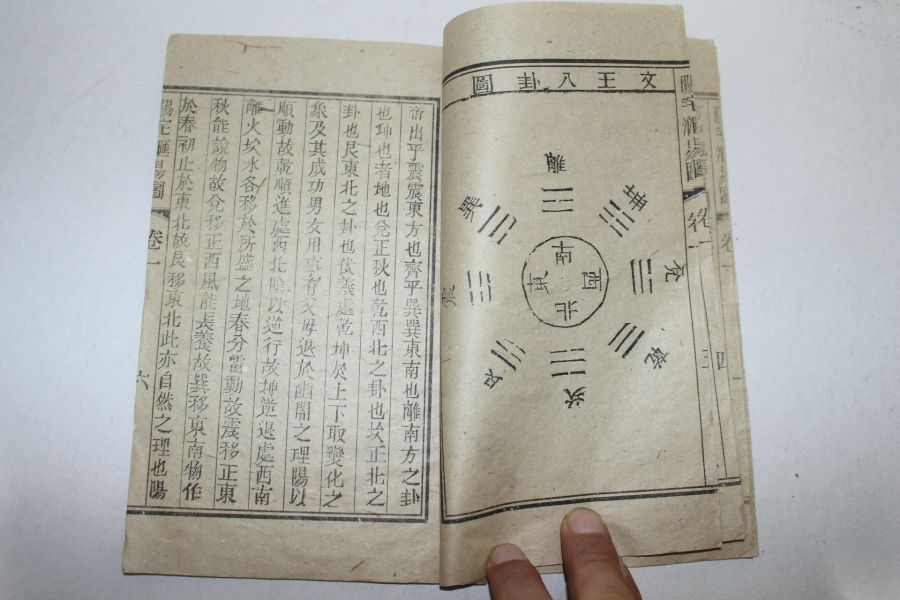 文王八卦圖
離
坤
兌
乾
坎
艮
震
巽
南
西
北
東
卷一
帝出乎震震東方也齊乎巽巽東南也離南方之卦
也坤也者地也兌正秋也乾西北之卦也坎正北之
卦也艮東北之卦也伏羲處乾坤於上下取變化之
象及其成功男女用事有父母退於幽閒之理陽以
順動故乾順進處西北陰以逆行故坤逆退處西南
離火坎水各移於所盛之地春分雷動故震移正東
秋能說物故兌移正西風能長養故巽移東南物作
於春初止於東北故艮移東北此亦自然之理也陽
卷一 六